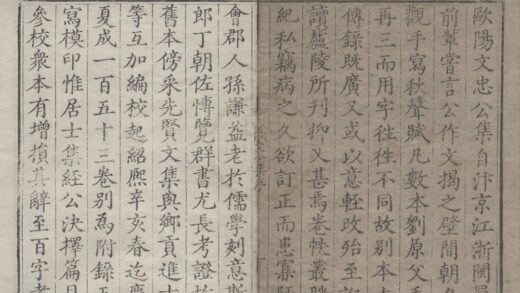 歐陽文忠公集自汴京江浙閩
前輩嘗言公作文揭之壁間朝
觀手寫秋聲賦凡數本劉原父手
再三而用字徃徃不同故别本
傳錄既廣又或以意輕改殆至
讀廬陵所刊抑又甚焉卷帙叢
紀私竊病之久欲訂正而患寡
會郡人孫謙益老於儒學刻意斯
郎丁朝佐博覽群書尤長考證於
舊本傍采先賢文集與鄉貢進士
等互加編校起紹熙辛亥春迄慶
夏成一百五十三卷别為附錄五
寫模印惟居士集經公決擇篇目
參校衆本有增損其辭至百字者